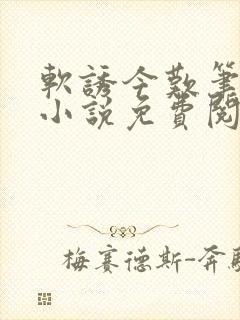 軟誘全勤筆
小說免費閱
梅賽德斯-奔馳